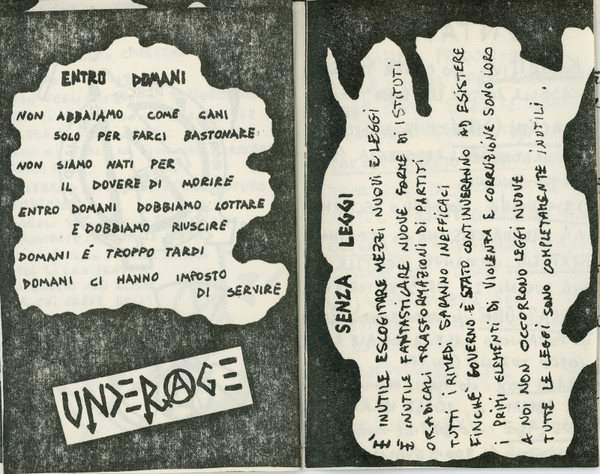 ENTRO DOMANI
NON ABBAIAMO COME CANI
SOLO PER FARCI BASTONARE
NON SIAMO NATI PER
IL DOVERE DI MORIRE
ENTRO DOMANI DOBBIAMO LOTTARE
E DOBBIAMO RIUSCIRE
DOMANI É TROPPO TARDI
DOMANI CI HANNO IMPOSTO
DI SERVIRE
UNDERAGE
SENZA LEGGI
È INUTILE ESCOGITARE MEZZI NUOVI E LEGGI
È INUTILE FANTASTICARE NUOVE FORME DI ISTITUTI
O RADICALI TRASFORMAZIONI DI PARTITI
TUTTI I RIMEDI SARANNO INEFFICACI
FINCHÉ GOVERNO E STATO CONTINUERANNO AD ESISTERE
I PRIMI ELEMENTI DI VIOLENZA E CORRUZIONE SONO LORO
A NOI NON OCCORRONO LEGGI NUOVE
TUTTE LE LEGGI SONO COMPLETAMENTE INUTILI.